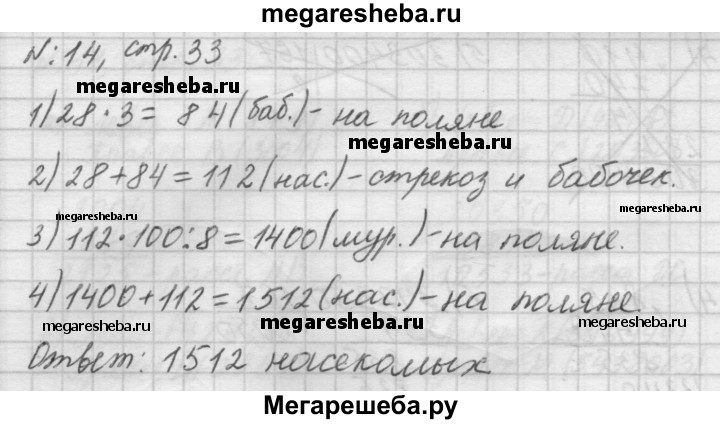 megaresheba.ru
№:14, стр.33
megaresheba.ru
1) 28·3= 84(баб.)- на поляне
megaresheba.ru
2) 28+84=112(нас.)-стрекоз и бабочек.
megaresheba.ru megaresheba.ru megaresheba.ru
3) 112·100:8=1400(мур.)-на поляне.
4) 1400+112=1512(нас.)-на поляне.
megaresheba.ru megaresheba.ru megaresheba.ru
Ответ: 1512 насекомых
Мегарешеба.ру